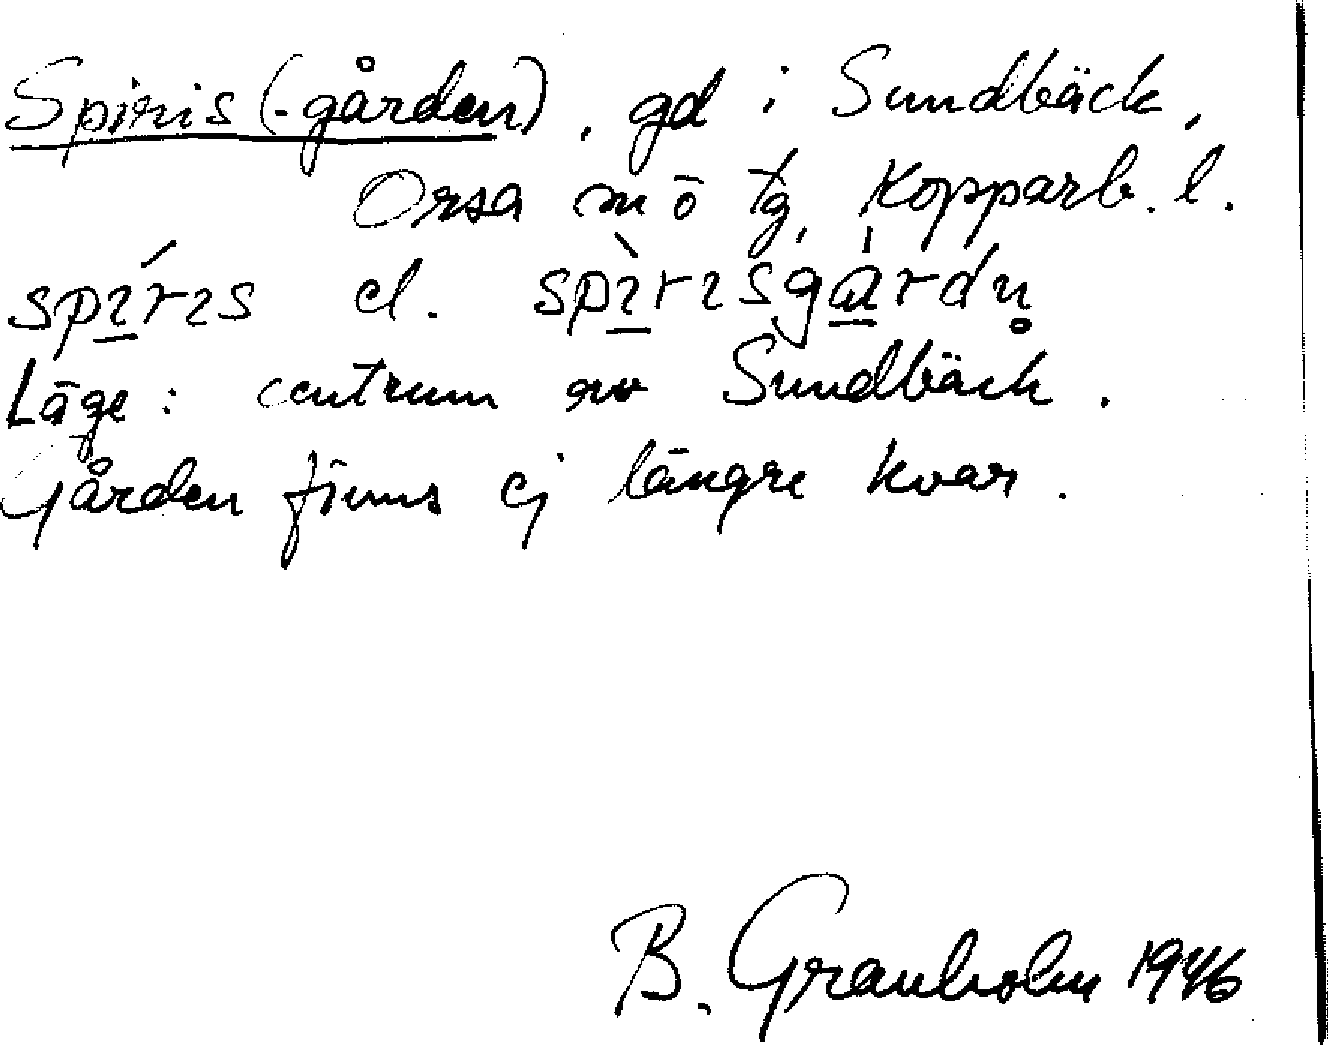 Spiris (-gården), gd i Sundbäck,
Orsa sn ö tg, Kopparb. l.
spí̱rıs el. spì̱rısgá̱rdn̥
Läge: centrum av Sundbäck.
Gården finns ej längre kvar.
B. Granholm 1946